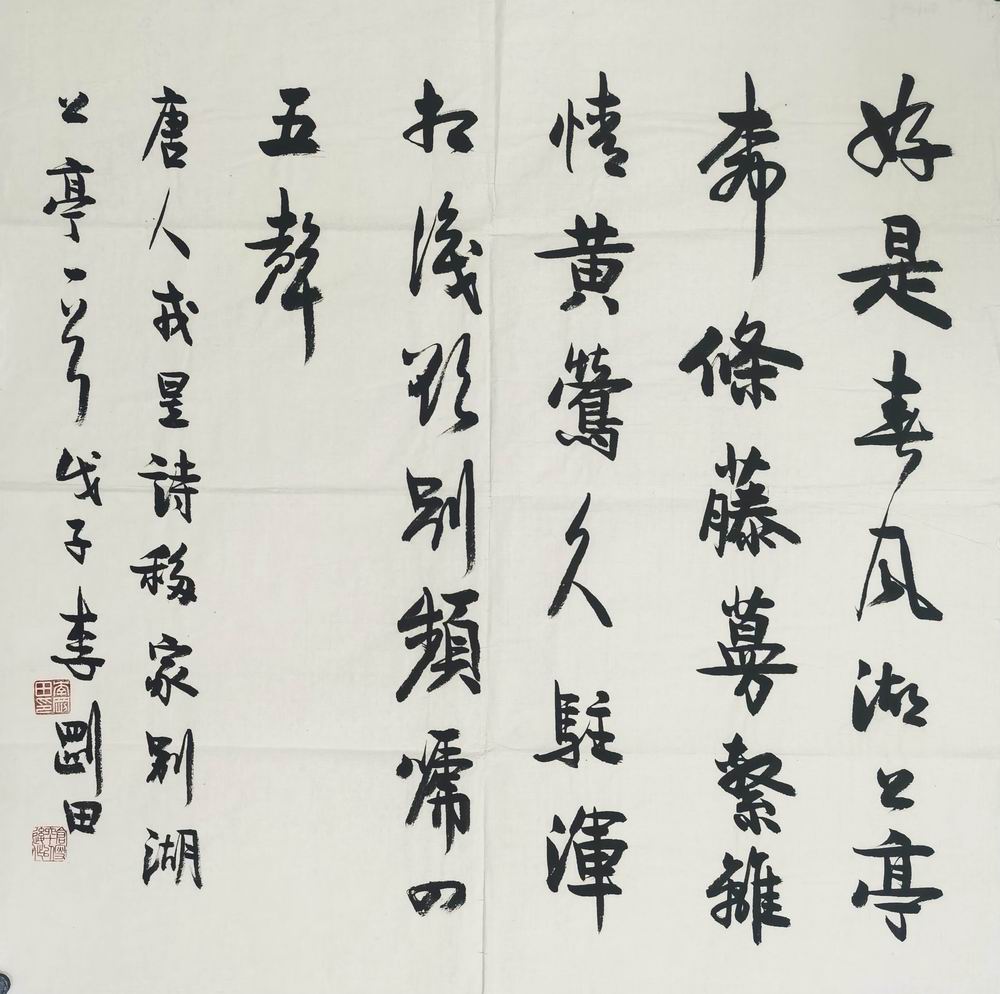 好是春風湖上亭
柳條藤蔓繫離
情黄鶯久駐渾
相識欲別頻啼四
五聲
唐人戎昱詩移家別湖
上亭一首戊子李剛田
李剛田印